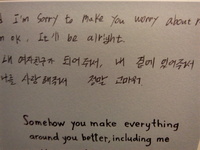 I'm sorry to make you worry about
ok, It'll be alright.
내 여자친구가 되어주어서, 내 곁에 있어주어서
나를 사랑해주어서 정말 고마워
Somehow you make everything
around you better, including me